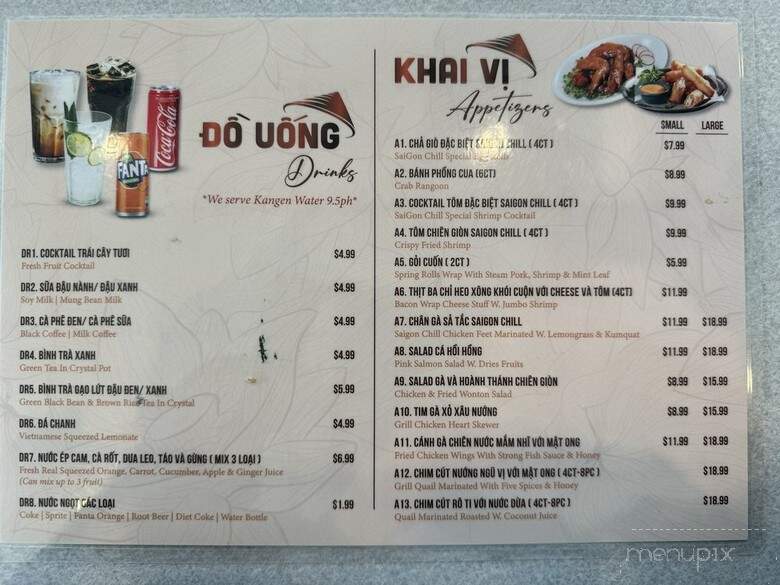 ĐỒ UỐNG
Drinks
*We serve Kangen Water 9.5ph*
Coca-Cola
FANTA
DR1. COCKTAIL TRÁI CÂY TƯƠI $4.99
Fresh Fruit Cocktail
DR2. SỮA ĐẬU NÀNH/ ĐẬU XANH $4.99
Soy Milk | Mung Bean Milk
DR3. CÀ PHÊ ĐEN/ CÀ PHÊ SỮA $4.99
Black Coffee | Milk Coffee
DR4. BÌNH TRÀ XANH $4.99
Green Tea In Crystal Pot
DR5. BÌNH TRÀ GẠO LỨT ĐẬU ĐEN/ XANH $5.99
Green Black Bean & Brown Rice Tea In Crystal
DR6. ĐÁ CHANH $4.99
Vietnamese Squeezed Lemonate
DR7. NƯỚC ÉP CAM, CÀ RỐT, DƯA LEO, TÁO VÀ GỪNG ( MIX 3 LOẠI ) $6.99
Fresh Real Squeezed Orange, Carrot, Cucumber, Apple & Ginger Juice
(Can mix up to 3 fruit)
DR8. NƯỚC NGỌT CÁC LOẠI $1.99
Coke | Sprite | Fanta Orange | Root Beer | Diet Coke | Water Bottle
KHAI VỊ
Appetizers
SMALL LARGE
A1. CHẢ GIÒ ĐẶC BIỆT SAIGON CHILL ( 4CT ) $7.99
SaiGon Chill Special Egg Rolls
A2. BÁNH PHỒNG CUA (6CT) $8.99
Crab Rangoon
A3. COCKTAIL TÔM ĐẶC BIỆT SAIGON CHILL ( 4CT ) $9.99
SaiGon Chill Special Shrimp Cocktail
A4. TÔM CHIÊN GIÒN SAIGON CHILL ( 4CT ) $9.99
Crispy Fried Shrimp
A5. GỎI CUỐN ( 2CT ) $5.99
Spring Rolls Wrap With Steam Pork, Shrimp & Mint Leaf
A6. THỊT BA CHỈ HEO XÔNG KHÓI CUỘN VỚI CHEESE VÀ TÔM (4CT) $11.99
Bacon Wrap Cheese Stuff W. Jumbo Shrimp
A7. CHÂN GÀ SẢ TẮC SAIGON CHILL $11.99 $18.99
Saigon Chill Chicken Feet Marinated W. Lemongrass & Kumquat
A8. SALAD CÁ HỒI HỒNG $11.99 $18.99
Pink Salmon Salad W. Dries Fruits
A9. SALAD GÀ VÀ HOÀNH THÁNH CHIÊN GIÒN $8.99 $15.99
Chicken & Fried Wonton Salad
A10. TIM GÀ XỎ XÂU NƯỚNG $8.99 $15.99
Grill Chicken Heart Skewer
A11. CÁNH GÀ CHIÊN NƯỚC MẮM NHĨ VỚI MẬT ONG $11.99 $18.99
Fried Chicken Wings With Strong Fish Sauce & Honey
A12. CHIM CÚT NƯỚNG NGŨ VỊ VỚI MẬT ONG ( 4CT-8PC ) $18.99
Grill Quail Marinated With Five Spices & Honey
A13. CHIM CÚT RÔ TI VỚI NƯỚC DỪA ( 4CT-8PC ) $18.99
Quail Marinated Roasted W. Coconut Juice
menupix